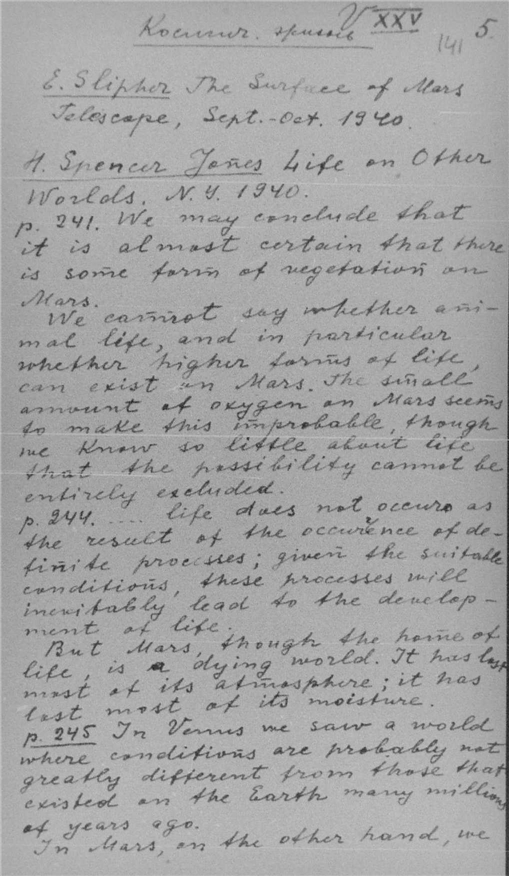 Космич. V XXV 5.
141
E. Slipher The Surface of Mars
Teloscope, Sept.-Oct. 1940.
H. Spencer Jones Life on Other
Worlds. N. Y. 1940.
p. 241. We may conclude that
it is almost certain that there
is some form of vegetation on
Mars.
We cannot say whether ani-
mal life, and in particular
whether higher forms of life,
can exist on Mars. The small
amount of oxygen on Mars seems
to make this improbable, though
we know so little about life
that the possibility cannot be
entirely excluded.
p. 244. .... life does not occurs as
the result of the occurence of de-
finite processes; given the suitable
conditions, these processes will
inevitably lead to the develop-
ment of life.
But Mars, though the home of
life, is a dying world. It has lost
most of its atmosphere; it has
lost most of its moisture.
p. 245 In Venus we saw a world
where conditions are probably not
greatly different from those that
existed on the Earth many millions
of years ago.
In Mars, on the other hand, we